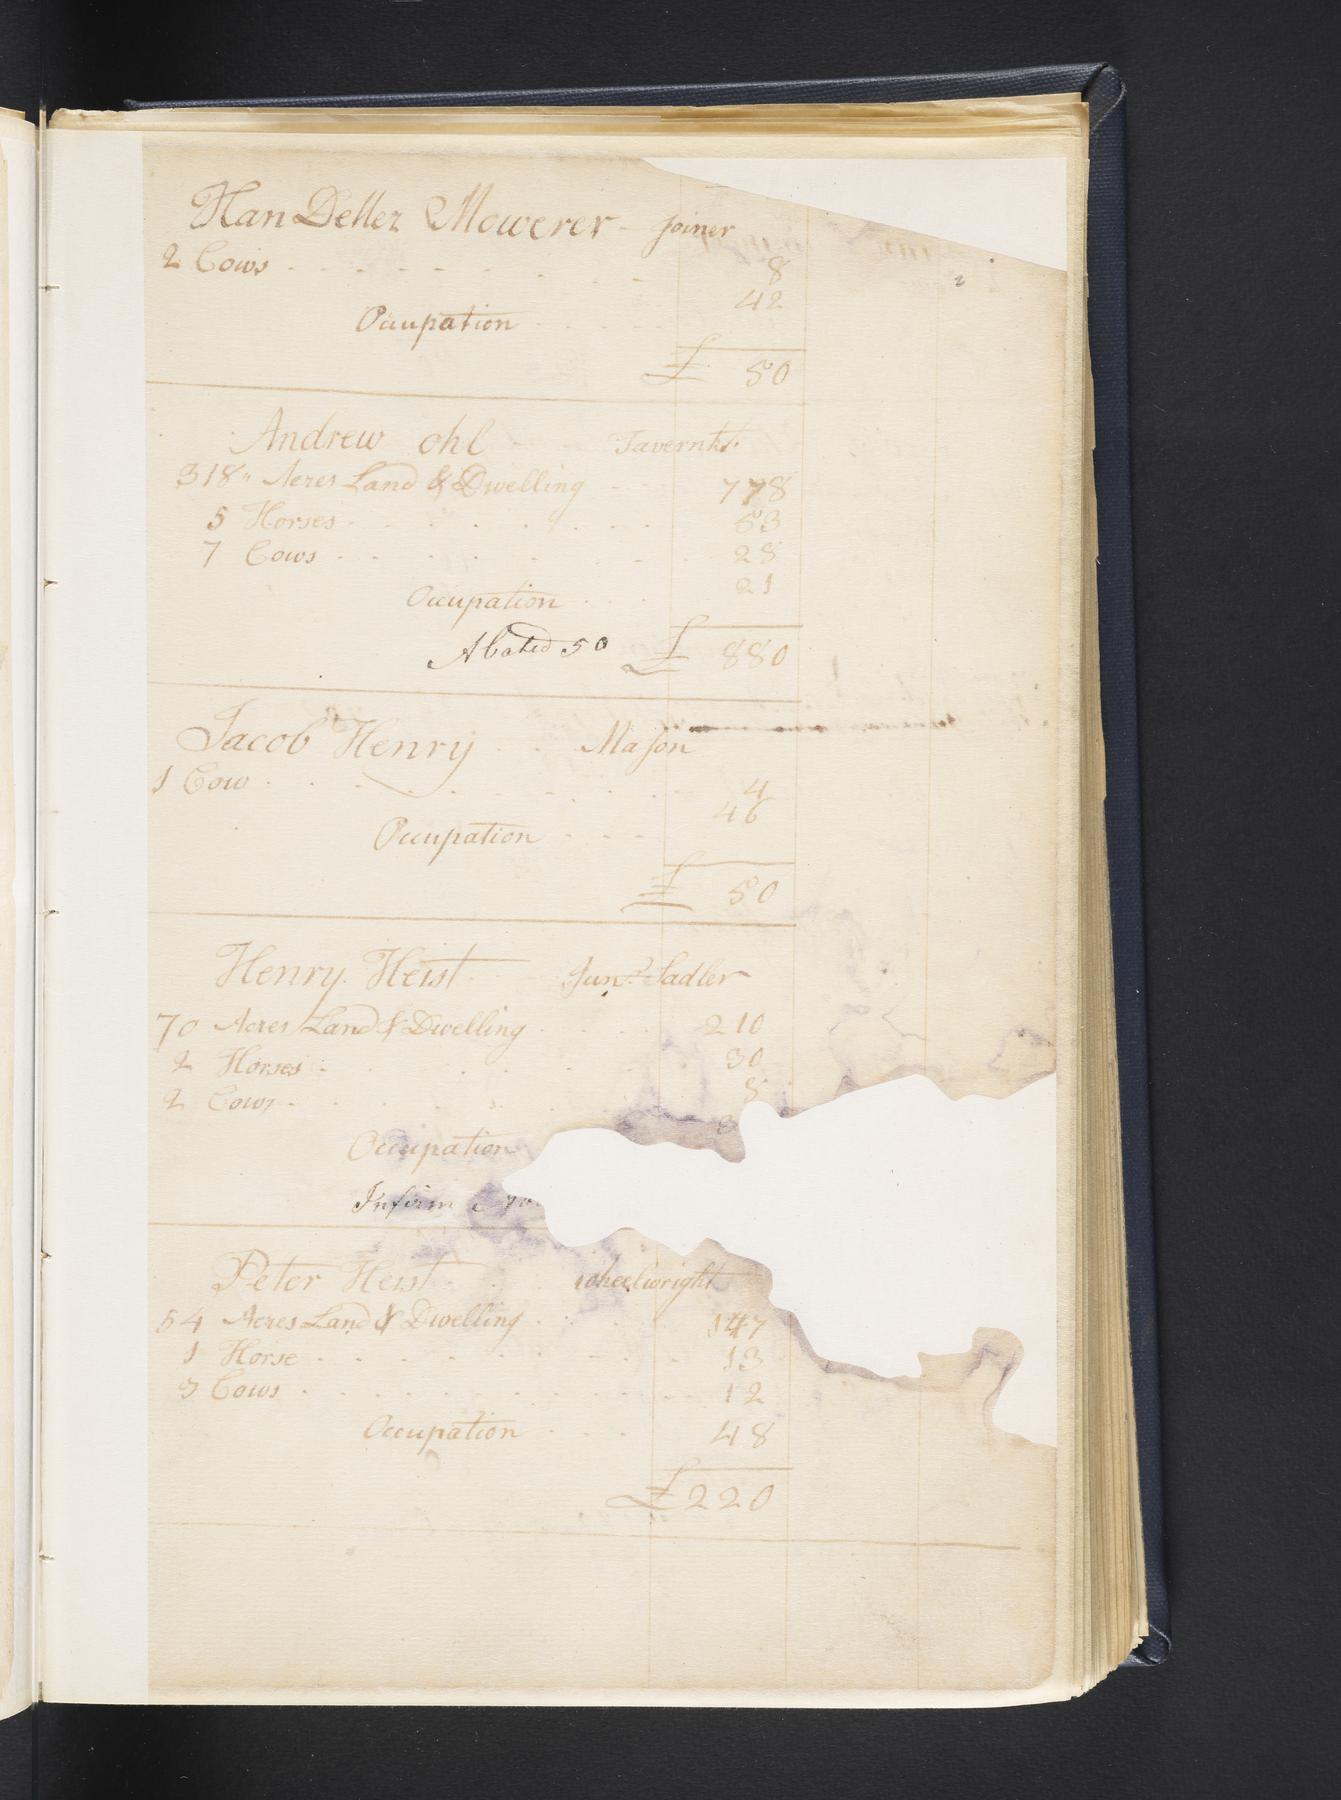 Han Deller Mowerer - Joiner
2 Cows - - - - - - - - 8
42
Occupation - - - -
£ 50
Andrew Ohl - - Tavernkr.
318 " Acres Land & Dwelling - - - 778
5 Horses - - - - - - - 53
7 Cows - - - - - - 28
21
Occupation - - -
Abated 50 £ 880
Jacob Henry - - Mason
1 Cow - - - - - - - 4
46
Occupation - - - -
£ 50
Henry Heist - Junr. Sadler
70 Acres Land & Dwelling - - - - 210
2 Horses - - - - - 30
2 Cows - - - - - - 8
Occupation
Infirm
Peter Heist - - wheelwright
54 Acres Land & Dwelling - - - - 147
1 Horse - - - - - - - 13
3 Cows - - - - - - - - 12
Occupation - - - 48
£ 220